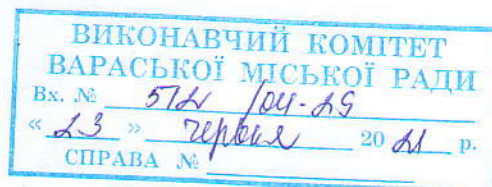 ВИКОНАВЧИЙ КОМІТЕТ
ВАРАСЬКОЇ МІСЬКОЇ РАДИ
Вх. № /04-29
« 23 » червня 20 21 р.
СПРАВА №